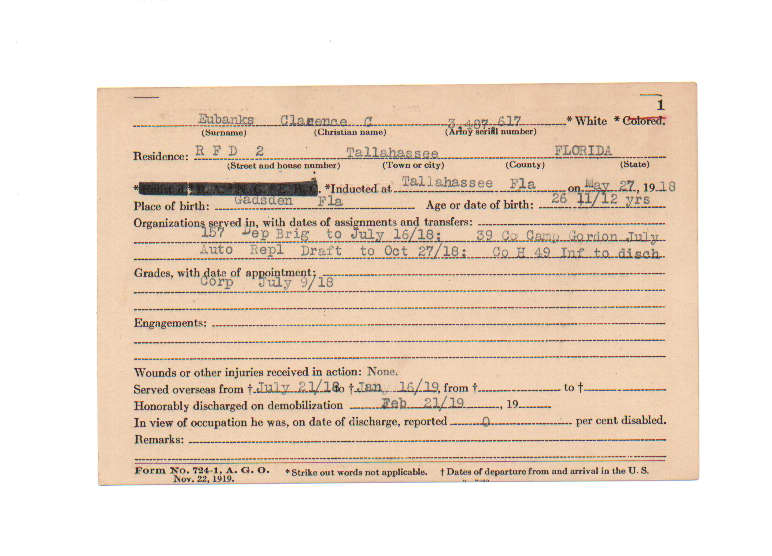 1
Eubanks Clarence C 3,407,617 * White * Colored.
(Surname) (Christian name) (Army serial number)
Residence: R F D 2 Tallahassee FLORIDA
(Street and house number) (Town or city) (County) (State)
* *Inducted at Tallahassee Fla on May 27, 1918
Place of birth: Gadsden Fla Age or date of birth: 26 11/12 yrs
Organizations served in, with dates of assignments and transfers:
157 Dep Brig to July 16/18; 39 Co Camp Gordon July
Auto Repl Draft to Oct 27/18; Co H 49 Inf to disch
Grades, with date of appointment:
Corp July 9/18
Engagements:
Wounds or other injuries received in action: None.
Served overseas from † July 21/18 to † Jan 16/19, from † to †
Honorably discharged on demobilization Feb 21/19, 19
In view of occupation he was, on date of discharge, reported 0 per cent disabled.
Remarks:
Form No. 724-1, A. G. O. *Strike out words not applicable. † Dates of departure from and arrival in the U. S.
Nov. 22, 1919.